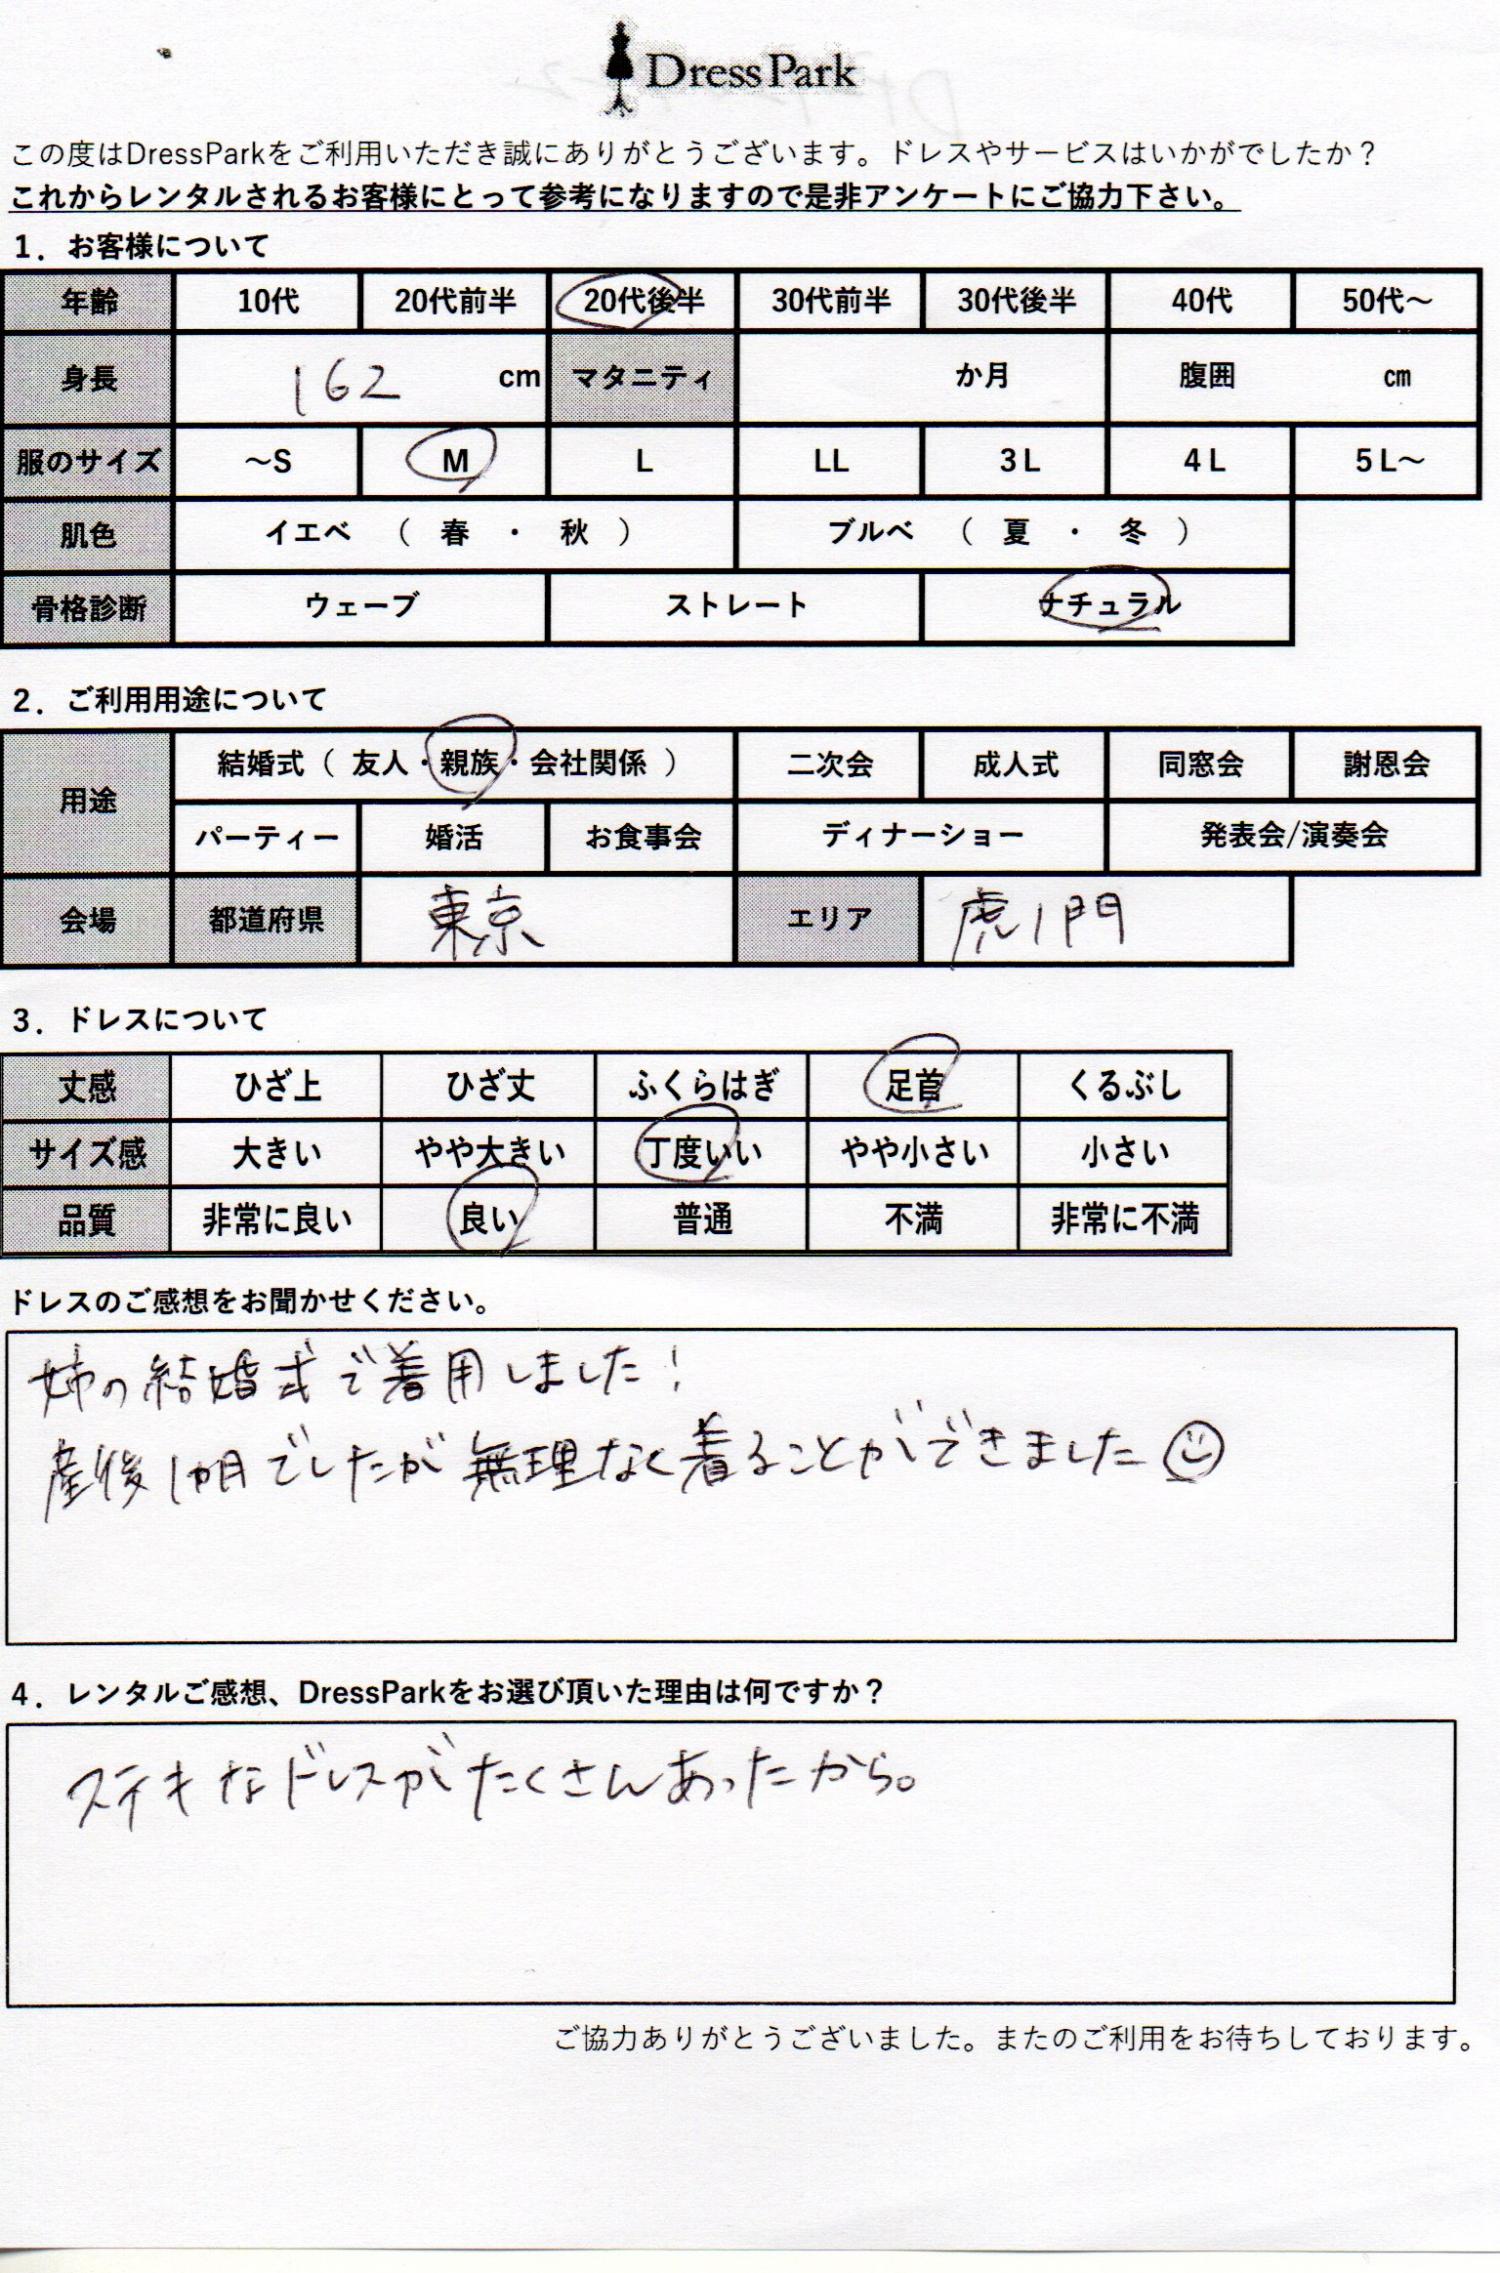 DressPark
この度はDressParkをご利用いただき誠にありがとうございます。ドレスやサービスはいかがでしたか？
これからレンタルされるお客様にとって参考になりますので是非アンケートにご協力下さい。
1．お客様について
年齢 10代 20代前半 20代後半 30代前半 30代後半 40代 50代～
身長 162 cm マタニティ か月 腹囲 ㎝
服のサイズ ～S M L LL 3L 4L 5L～
肌色 イエベ （ 春 ・ 秋 ） ブルベ （ 夏 ・ 冬 ）
骨格診断 ウェーブ ストレート ナチュラル
2．ご利用用途について
用途 結婚式（ 友人・親族・会社関係 ） 二次会 成人式 同窓会 謝恩会
パーティー 婚活 お食事会 ディナーショー 発表会/演奏会
会場 都道府県 東京 エリア 虎ノ門
3．ドレスについて
丈感 ひざ上 ひざ丈 ふくらはぎ 足首 くるぶし
サイズ感 大きい やや大きい 丁度いい やや小さい 小さい
品質 非常に良い 良い 普通 不満 非常に不満
ドレスのご感想をお聞かせください。
姉の結婚式で着用しました！
産後1ヶ月でしたが無理なく着ることができました☺
4．レンタルご感想、DressParkをお選び頂いた理由は何ですか？
ステキなドレスがたくさんあったから。
ご協力ありがとうございました。またのご利用をお待ちしております。